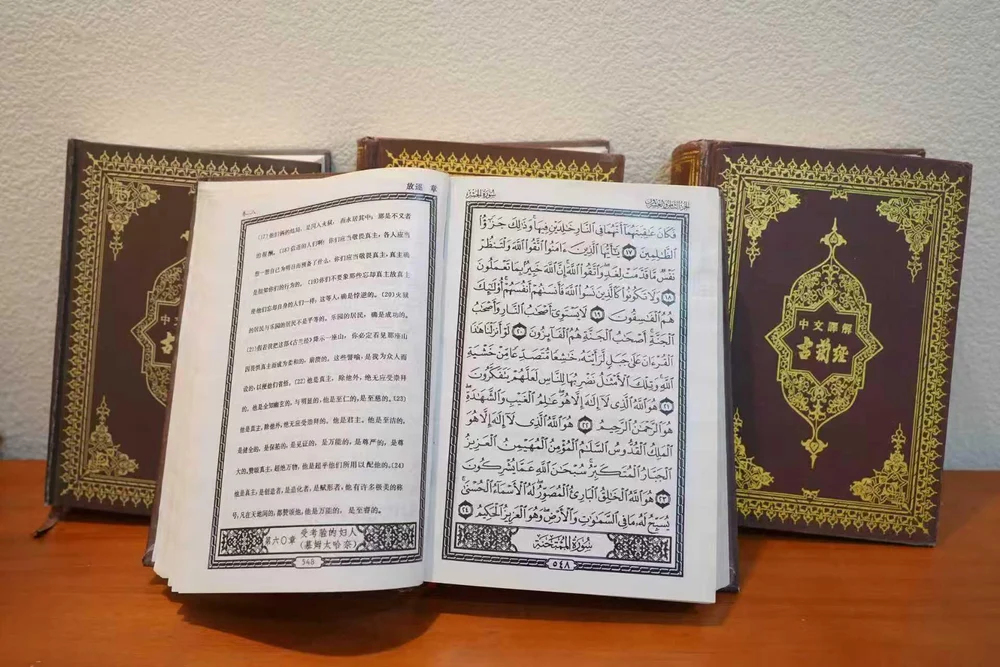 放逐 章
(17)他们俩的结局,是同入火狱,而永居其中;那是不义者
的报酬。(18)信道的人们啊!你们应当敬畏真主,各人应当
想一想自己为明日而预备了什么,你们应当敬畏真主,真主确
是彻知你们的行为的。(19)你们不要象那些忘却真主,故真主
使他们忘却自身的人们一样,这等人,确是悖逆的。(20)火狱
的居民与乐园的居民不是平等的,乐园的居民,确是成功的。
(21)假若我把这部《古兰经》降示一座山,你必定看见那座山
因畏惧真主而成为柔和的,崩溃的。这些譬喻,是我为众人而
设的,以便他们省悟。(22)他是真主,除他外,绝无应受崇拜
的,他是全知幽玄的,与明显的,他是至仁的,是至慈的。(23)
他是真主,除他外,绝无应受崇拜的,他是君主,他是至洁的,
是健全的,是保佑的,是见证的,是万能的,是尊严的,是尊
大的。赞颂真主,超绝万物,他是超乎他们所用以配他的。(24)
他是真主,是创造者,是造化者,是赋形者,他有许多极美的称
号,凡在天地间的,都赞颂他,他是万能的,是至睿的。
第六〇章 受考验的妇人
(慕姆太哈奈)
548
سُورَةُ الحَشْرِ
فَكَانَ عَاقِبَتَهُمَا أَنَّهُمَا فِي النَّارِ خَالِدَيْنِ فِيهَا وَذَٰلِكَ جَزَٰٓؤُا
الظَّالِمِينَ ١٧ يَا أَيُّهَا الَّذِينَ ءَامَنُوا اتَّقُوا اللَّهَ وَلْتَنظُرْ
نَفْسٌ مَّا قَدَّمَتْ لِغَدٍ وَاتَّقُوا اللَّهَ إِنَّ اللَّهَ خَبِيرٌ بِمَا تَعْمَلُونَ
١٨ وَلَا تَكُونُوا كَالَّذِينَ نَسُوا اللَّهَ فَأَنسَاهُمْ أَنفُسَهُمْ أُولَٰئِكَ
هُمُ الْفَاسِقُونَ ١٩ لَا يَسْتَوِي أَصْحَابُ النَّارِ وَأَصْحَابُ
الْجَنَّةِ أَصْحَابُ الْجَنَّةِ هُمُ الْفَائِزُونَ ٢٠ لَوْ أَنزَلْنَا هَٰذَا
الْقُرْءَانَ عَلَىٰ جَبَلٍ لَّرَأَيْتَهُ خَاشِعًا مُّتَصَدِّعًا مِّنْ خَشْيَةِ
اللَّهِ وَتِلْكَ الْأَمْثَالُ نَضْرِبُهَا لِلنَّاسِ لَعَلَّهُمْ يَتَفَكَّرُونَ
٢١ هُوَ اللَّهُ الَّذِي لَا إِلَٰهَ إِلَّا هُوَ عَالِمُ الْغَيْبِ وَالشَّهَادَةِ
هُوَ الرَّحْمَٰنُ الرَّحِيمُ ٢٢ هُوَ اللَّهُ الَّذِي لَا إِلَٰهَ إِلَّا هُوَ
الْمَلِكُ الْقُدُّوسُ السَّلَامُ الْمُؤْمِنُ الْمُهَيْمِنُ الْعَزِيزُ
الْجَبَّارُ الْمُتَكَبِّرُ سُبْحَانَ اللَّهِ عَمَّا يُشْرِكُونَ
٢٣ هُوَ اللَّهُ الْخَالِقُ الْبَارِئُ الْمُصَوِّرُ لَهُ الْأَسْمَاءُ الْحُسْنَىٰ
يُسَبِّحُ لَهُ مَا فِي السَّمَاوَاتِ وَالْأَرْضِ وَهُوَ الْعَزِيزُ الْحَكِيمُ ٢٤
سُورَةُ المُمْتَحَنَةِ
٥٤٨
中文譯解
古蘭經
中文
古